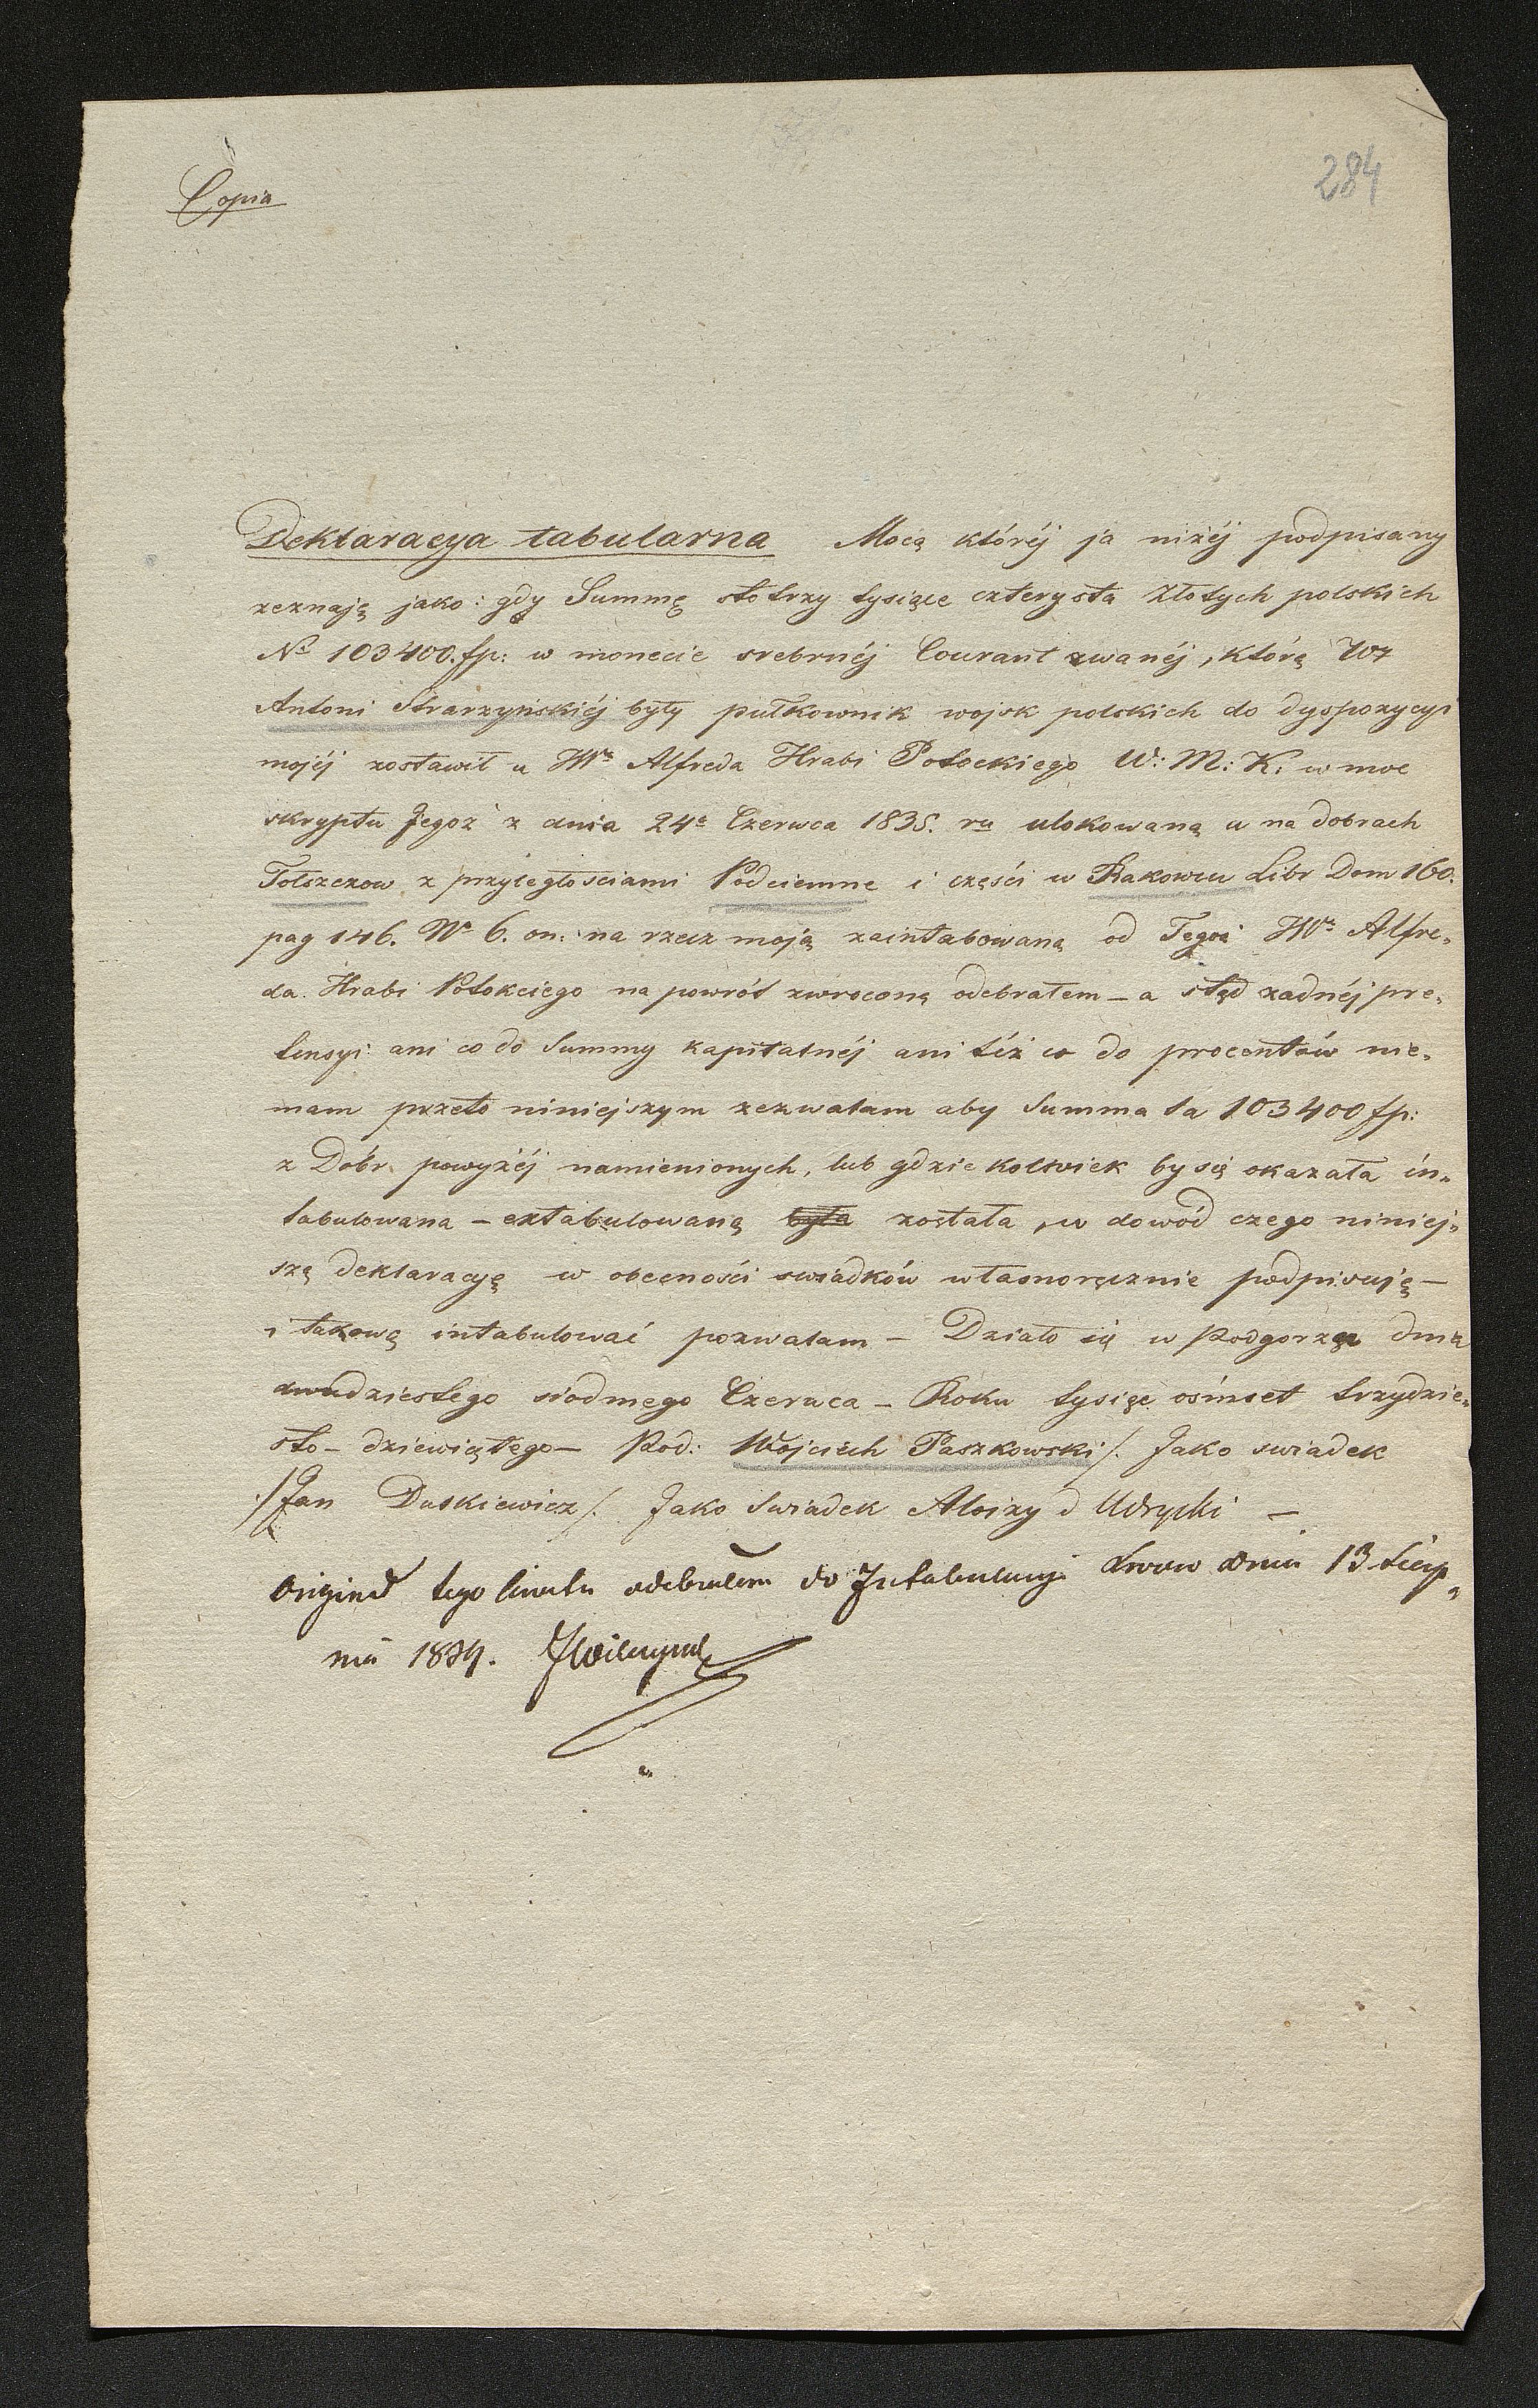 284
Copia
Deklaracya tabularna Mocą któréj ja niżéj podpisany
zeznaję jako: gdy Summę stotrzy tysiące czterysta Złotych polskich
No 103400.fp: w monecie srebrnéj Courant zwanéj, którą Wz
Antoni Starzyńskiéj były pułkownik wojsk polskich do dyspozycyi
mojéj zostawił u JWo Alfreda Hrabi Potockiego W: M: K: w moc
skryptu Jegoż z dnia 24o Czerwca 1835. ru ulokowaną a na dobrach
Tolszczow z przyległościami Podciemne i części w Rakowcu Libr Dom 160.
pag 146. No 6. on: na rzecz moją zaintabowaną od Tegoż JWo Alfre„
da Hrabi Potokciego na powrót zwroconą odebrałem – a stąd żadnéj pre„
tensyi ani co do Summy kapitalnéj ani téż co do procentów nie„
mam przeto niniejszym zezwalam aby Summa ta 103400 fp:
z Dóbr powyżéj namienionych, lub gdzie kolwiek by się okazała in„
tabulowana – extabulowaną była została, w dowód czego niniej„
szą deklaracyę w obecności swiadków własnoręcznie podpisuję –
i takową intabulować pozwalam – Działo się w Podgorzu dnia
dwudziestego siodmego Czerwca – Roku tysiąc ośmset trzydzie„
sto – dziewiątego – Pod: Wojciech Paszkowski /. Jako swiadek
./ Jan Duskiewicz /. Jako Swiadek Aloizy d Udrycki –
Originał tego odebrałem do Intabulacyi Lwow dnia 13 Sierp„
nia 1839.